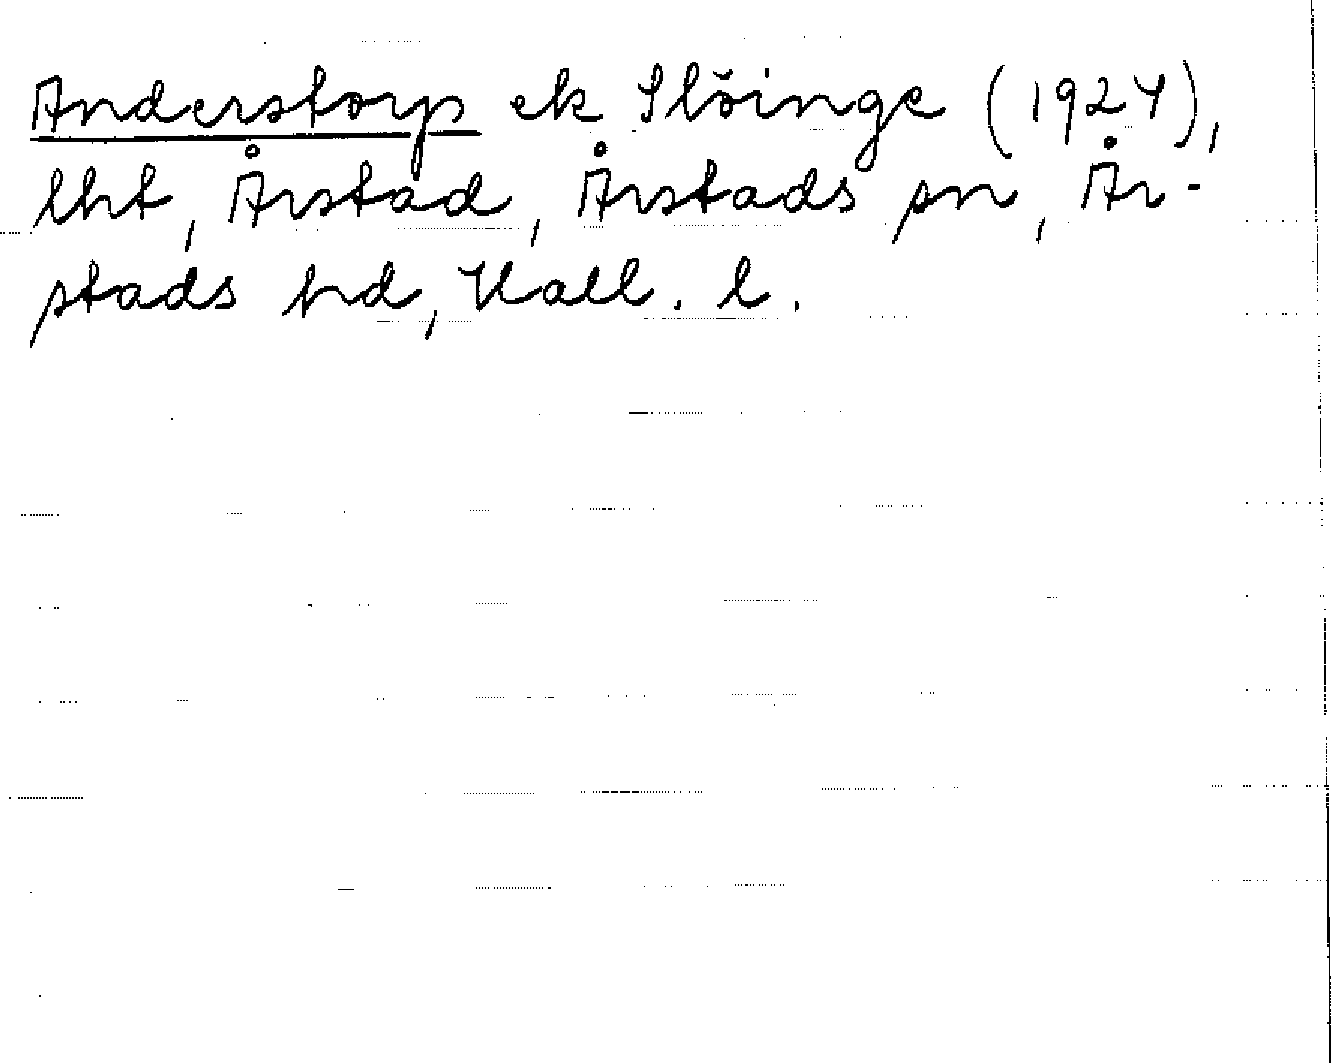 Anderstorp ek Slöinge (1927),
lht, Årstad, Årstads sn, År-
stads hd, Hall. l.